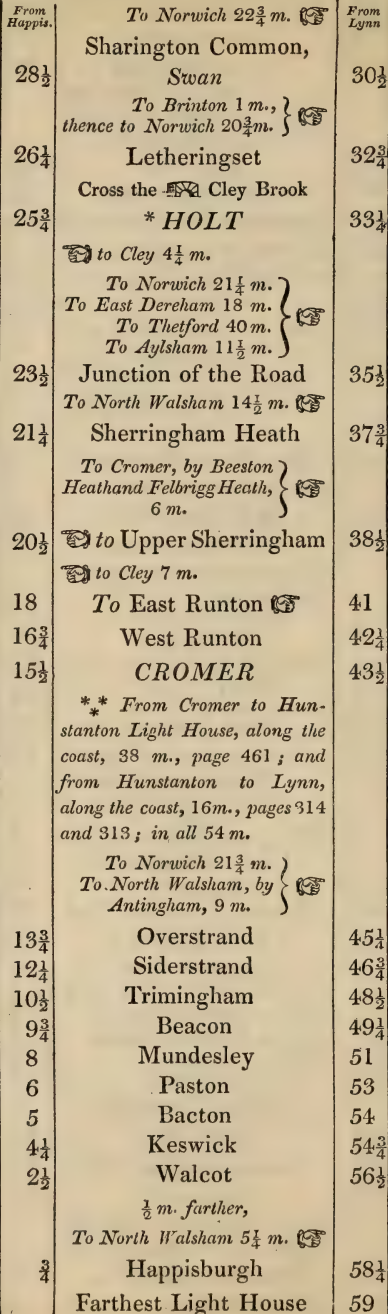 From Happis. To Norwich 22¾ m. ☞ From Lynn
Sharington Common,
28½ Swan 30½
To Brinton 1 m.,
thence to Norwich 20¾m. ☞
26¼ Letheringset 32¾
Cross the Cley Brook
25¾ * HOLT 33¼
☜ to Cley 4¼ m.
To Norwich 21¼ m.
To East Dereham 18 m. ☞
To Thetford 40 m.
To Aylsham 11½ m.
23½ Junction of the Road 35½
To North Walsham 14½ m. ☞
21¼ Sherringham Heath 37¾
To Cromer, by Beeston
Heathand Felbrigg Heath, ☞
6 m.
20½ ☜ to Upper Sherringham 38½
☜ to Cley 7 m.
18 To East Runton ☞ 41
16¾ West Runton 42¼
15½ CROMER 43½
*** From Cromer to Hun-
stanton Light House, along the
coast, 38 m., page 461; and
from Hunstanton to Lynn,
along the coast, 16m., pages 314
and 313; in all 54 m.
To Norwich 21¾ m.
To North Walsham, by ☞
Antingham, 9 m.
13¾ Overstrand 45¼
12¼ Siderstrand 46¾
10½ Trimingham 48½
9¾ Beacon 49¼
8 Mundesley 51
6 Paston 53
5 Bacton 54
4¼ Keswick 54¾
2½ Walcot 56½
½ m. farther,
To North Walsham 5¼ m. ☞
¾ Happisburgh 58¼
Farthest Light House 59